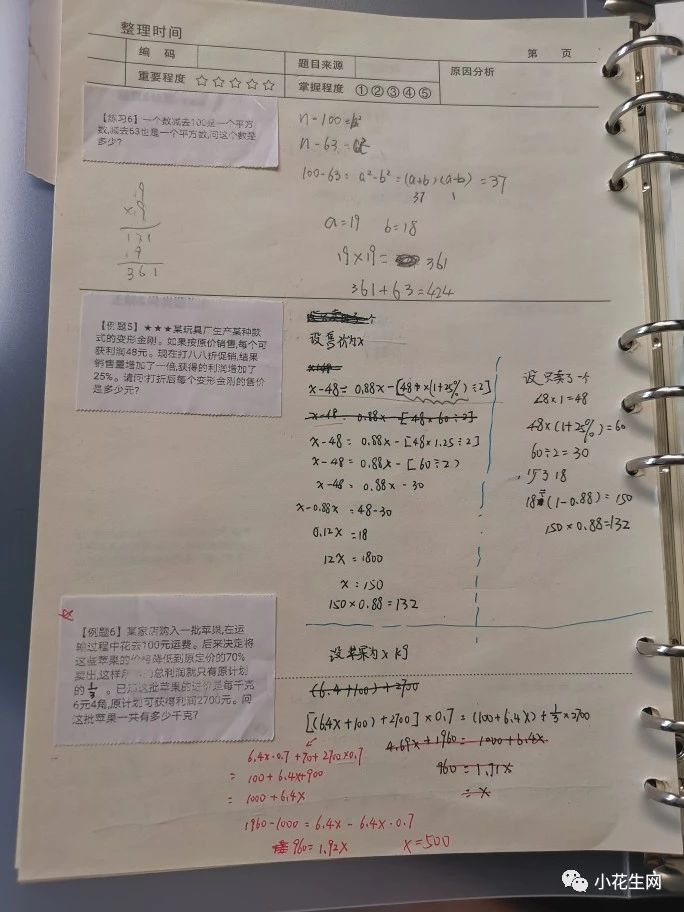 整理时间
编 码
题目来源
第 页
重要程度 ☆☆☆☆☆
掌握程度 ①②③④⑤
原因分析
【练习6】一个数减去100是一个平方
数,减去63也是一个平方数,问这个数是
多少?
n-100=b²
n-63=a²
100-63=a²-b²=(a+b)(a-b)=37
37 1
a=19 b=18
19×19= 361
361+63=424
19
×19
171
19
361
【例题5】★★★某玩具厂生产某种款
式的变形金刚。如果按原价销售,每个可
获利润48元。现在打八八折促销,结果
销售量增加了一倍,获得的利润增加了
25%。请问:打折后每个变形金刚的售价
是多少元?
设售价为x
x-48
x-48=0.88x-[48×(1+25%)÷2]
x-48=0.88x-[48×60÷2]
x-48=0.88x-[48×1.25÷2]
x-48=0.88x-[60÷2)
x-48=0.88x-30
x-0.88x=48-30
0.12x=18
12x=1800
x=150
150×0.88=132
设只卖了一个
48×1=48
48×(1+25%)=60
60÷2=30
亏了18
18÷(1-0.88)=150
150×0.88=132
【例题6】某家店购入一批苹果,在运
输过程中花去100元运费。后来决定将
这些苹果的价格降低到原定价的70%
卖出,这样所得的总利润就只有原计划
的1/3。已知这批苹果的进价是每千克
6元4角,原计划可获得利润2700元。问
这批苹果一共有多少千克?
设苹果为x kg
(6.4+100)+2700
[(6.4x+100)+2700]×0.7=(100+6.4x)+1/3×2700
4.69x+1960=1000+6.4x
960=1.71x
=x
6.4x·0.7+70+2700×0.7
=100+6.4x+900
=1000+6.4x
1960-1000=6.4x-6.4x·0.7
960=1.92x
x=500
小花生网